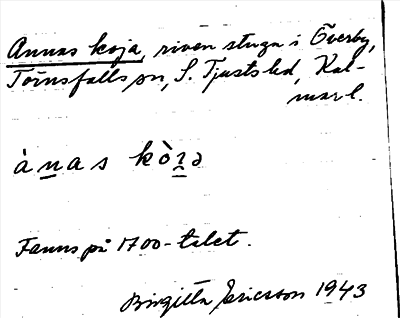 Annas koja, riven stuga i Överby,
Törnsfalls sn, S. Tjusts hd, Kal-
mar l.
ànas kòʅə
Fanns på 1700-talet.
Birgitta Ericsson 1943